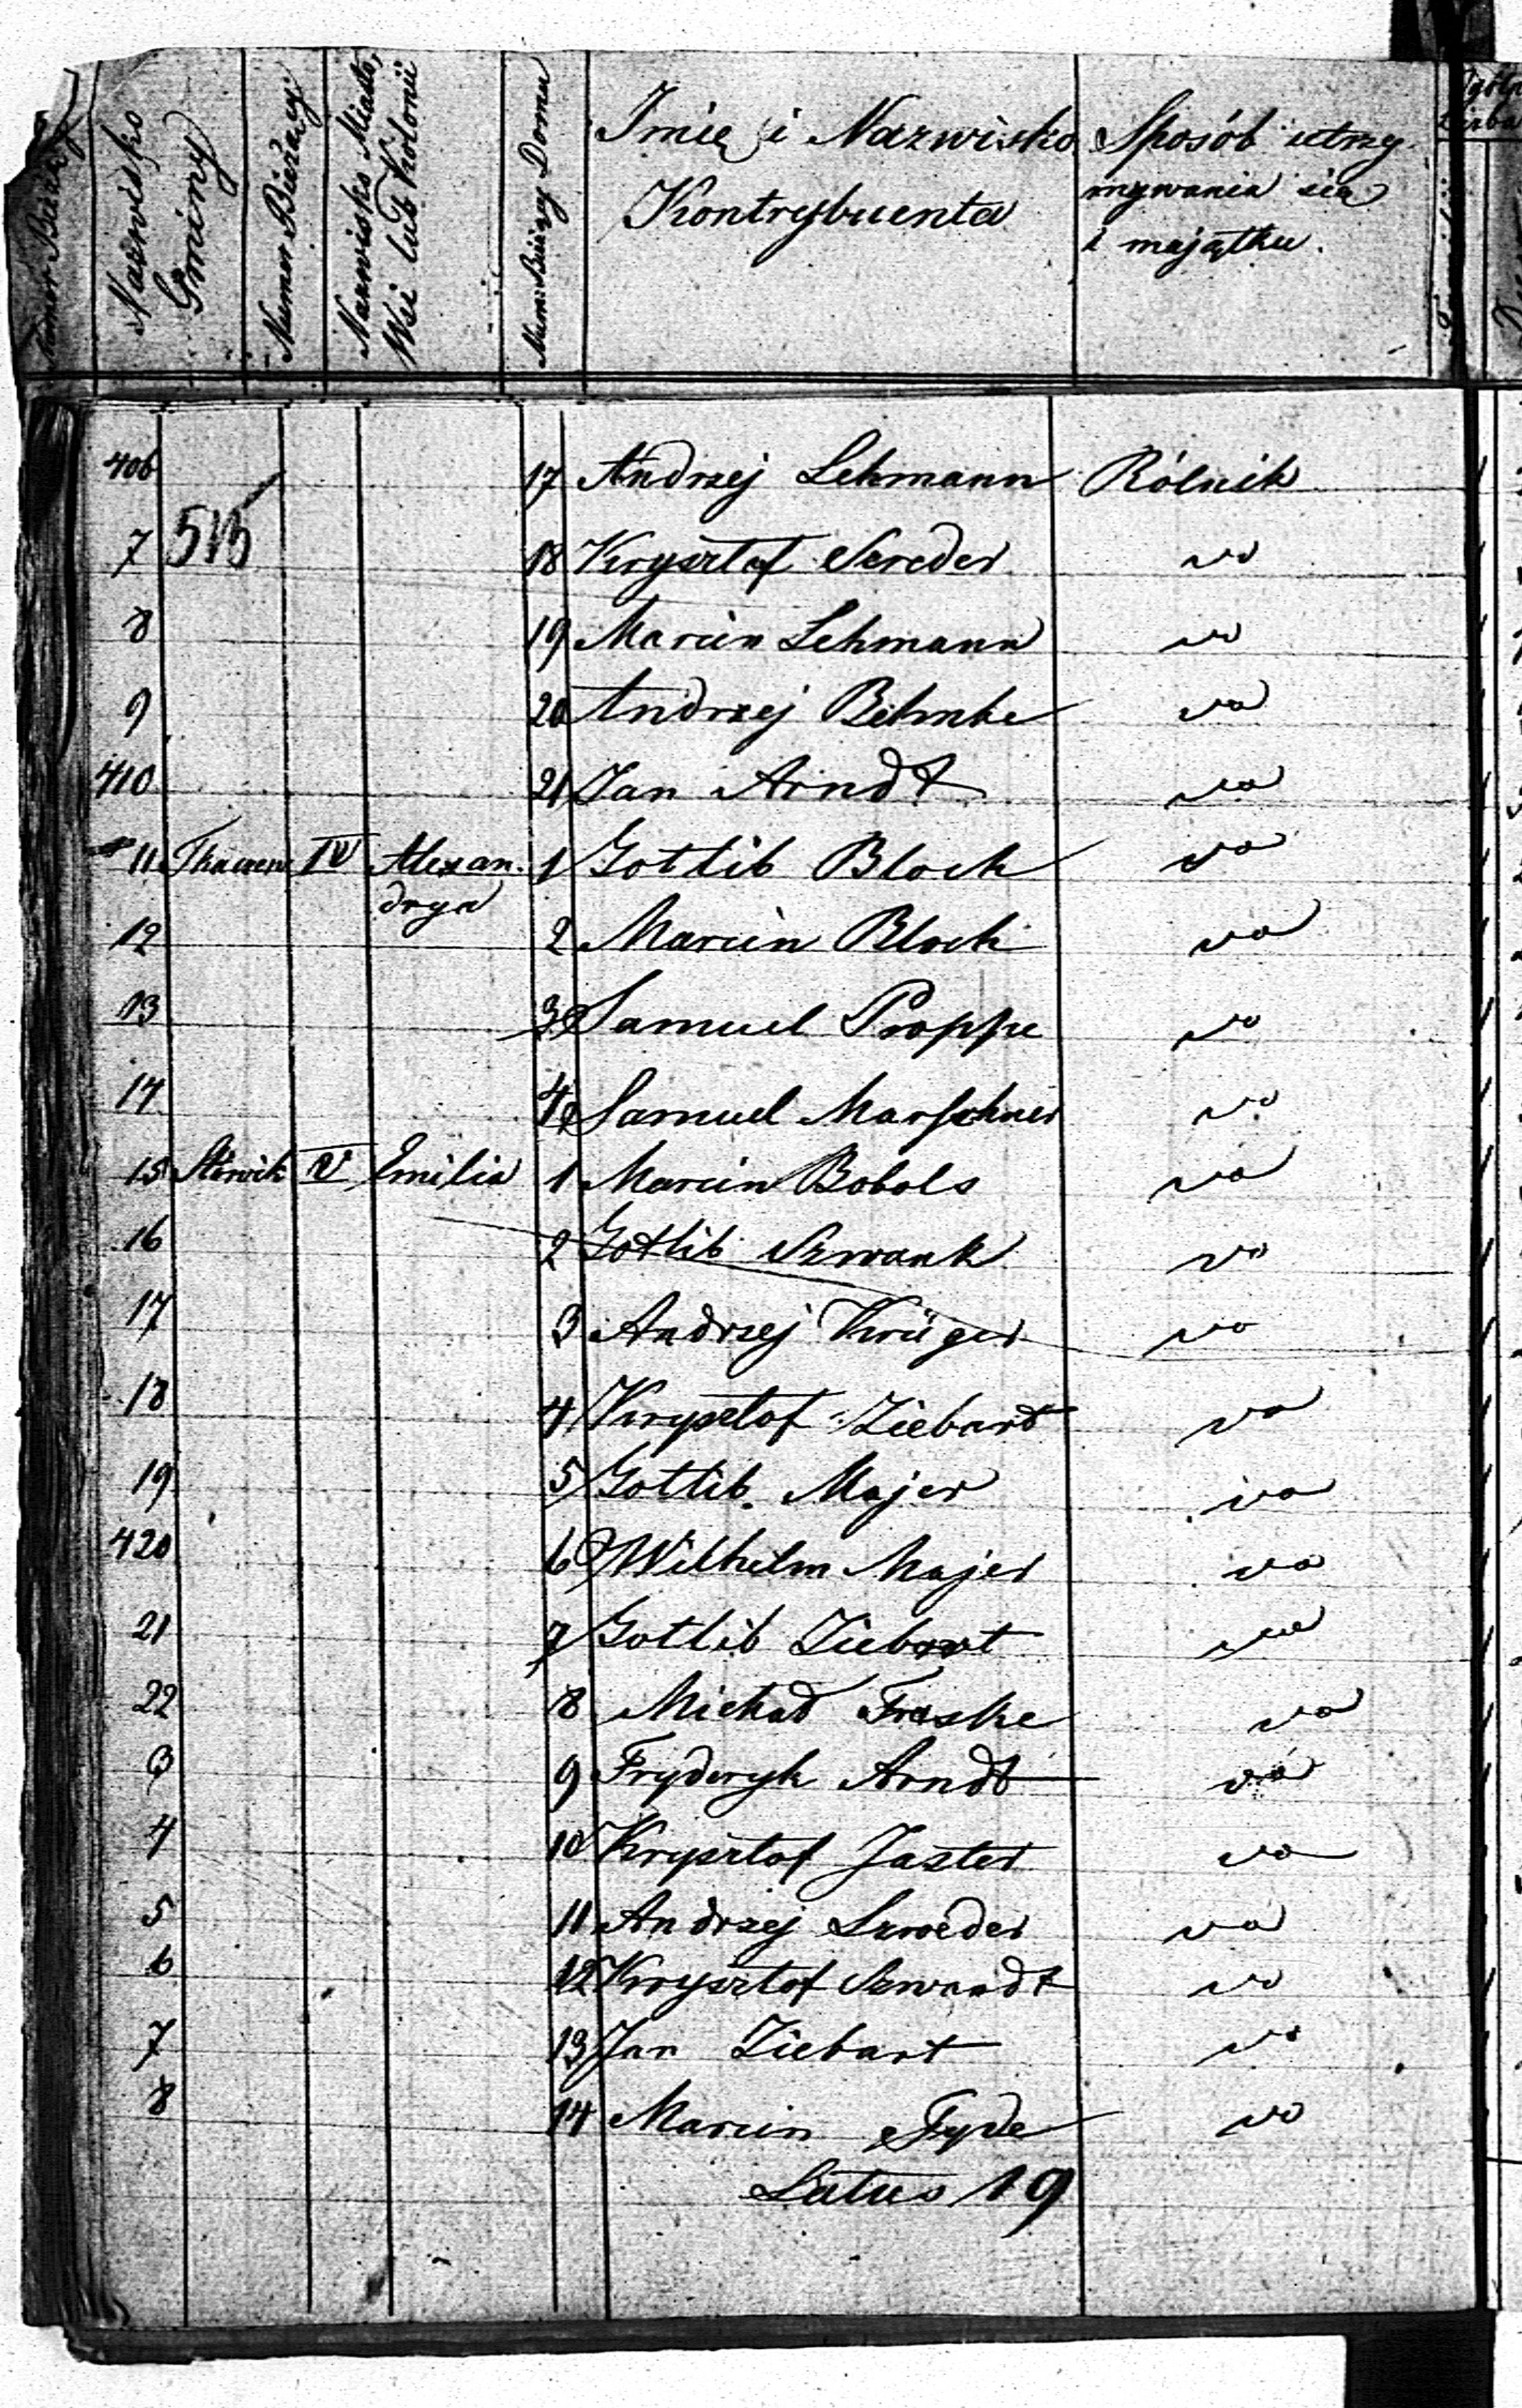 Numer Bieżący
Nazwisko Gminy
Numer Bieżący
Nazwisko Miasta, Wsi lub Kolonii
Num: Bieżący Domu
Imię i Nazwisko Kontrybuenta
Sposób utrzymywania się i majątku.
406 17 Andrzej Lehmann Rólnik
515
7 18 Krysztof Szreder vo
8 19 Marcin Lehmann vo
9 20 Andrzej Behnke vo
410 21 Jan Arndt vo
11 IV Alexan. 1 Gotlib Block vo
drya
12 2 Marcin Block vo
13 3 Samuel Proppe vo
14 4 Samuel Marschner vo
15 V Emilia 1 Marcin Bobols vo
16 2 Gotlib Szwank vo
17 3 Andrzej Krüger vo
18 4 Krysztof Ziebart vo
19 5 Gotlib Majer vo
420 6 Wilhelm Majer vo
21 7 Gotlib Ziebart vo
22 8 Michał Fraske vo
3 9 Fryderyk Arndt vo
4 10 Krysztof Jaster vo
5 11 Andrzej Szreder vo
6 12 Krysztof Szwandt vo
7 13 Jan Ziebart vo
8 14 Marcin Tyde vo
Latus 19